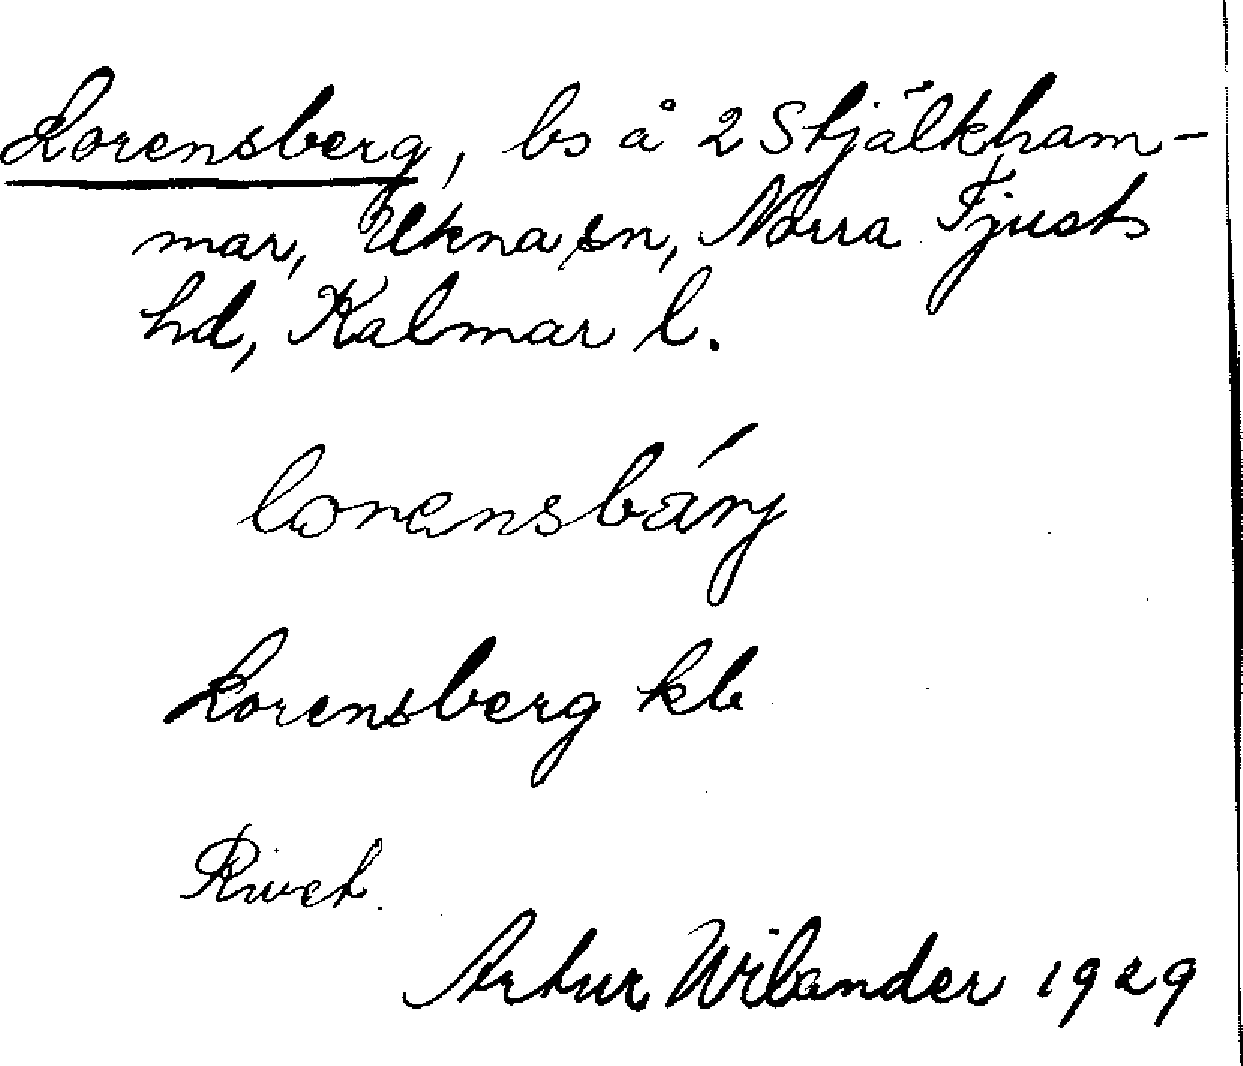 Lorensberg, bs å 2 Stjälkham-
mar, Ukna sn, Norra Tjusts
hd, Kalmar l.
lorensbárj
Lorensberg kb
Rivet.
Artur Wilander 1929